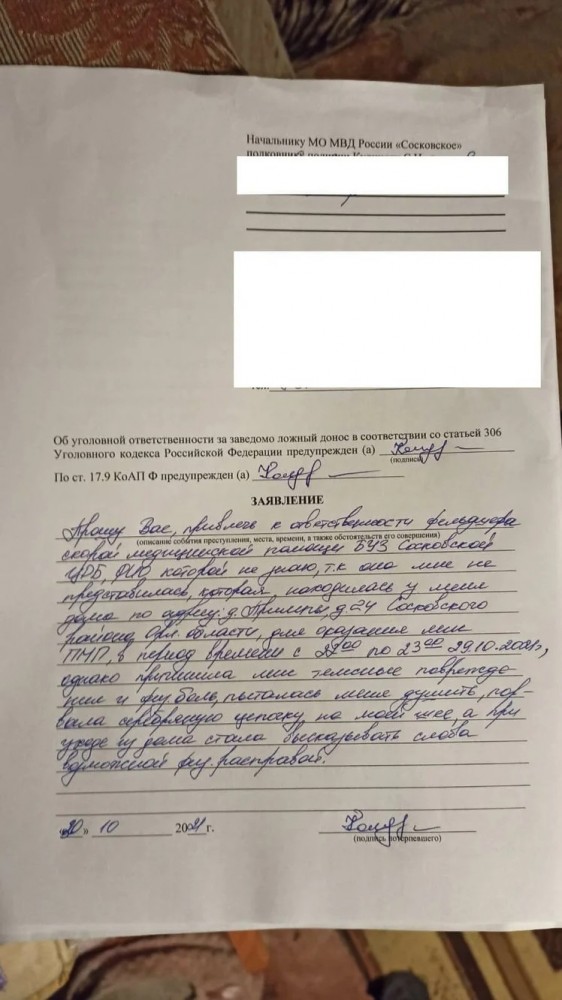 Начальнику МО МВД России «Сосковское»
Об уголовной ответственности за заведомо ложный донос в соответствии со статьей 306
Уголовного кодекса Российской Федерации предупрежден (а)
(подпись)
По ст. 17.9 КоАП Ф предупрежден (а)
ЗАЯВЛЕНИЕ
Прошу Вас, привлечь к ответственности фельдшера
(описание события преступления, места, времени, а также обстоятельств его совершения)
скорой медицинской помощи БУЗ Сосковской
ЦРБ, ФИО которой не знаю, т.к она мне не
представилась, которая, находилась у меня
дома по адресу: д. д.24 Сосковского
района Орл. области, для оказания мне
ПМП, в период времени с 22 00 по 23 00 29.10.2021г,
однако причинила мне телесные поврежде-
ния и физ. боль, пыталась меня душить, пор-
вала серебряную цепочку на моей шее, а при
уходе из дома стала высказывать слова
физ. расправой.
10 2021г.
(подпись потерпевшего)